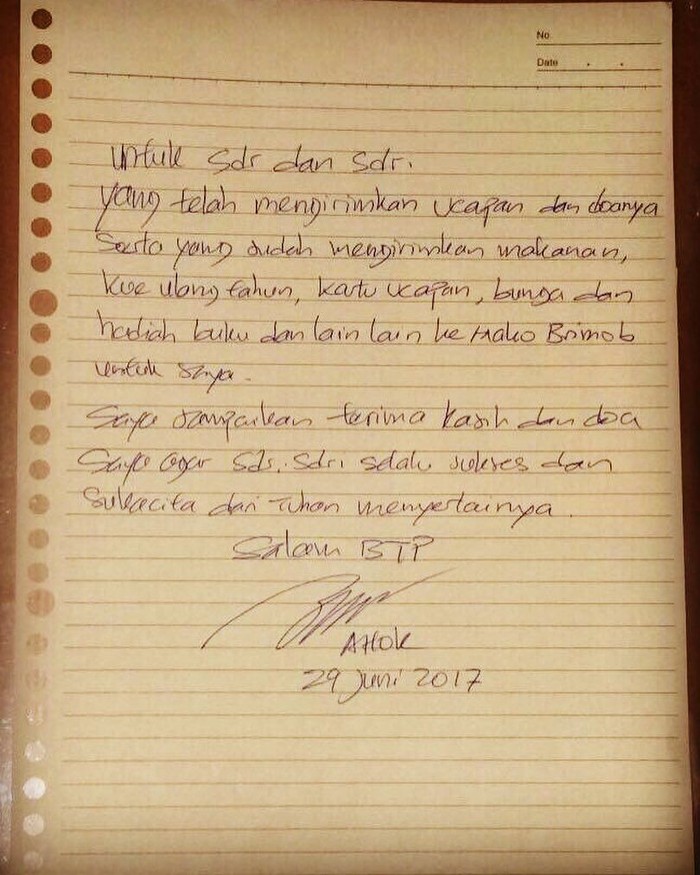 No
Date
Untuk Sdr dan Sdri.
yang telah mengirimkan ucapan dan doanya
Serta yang sudah mengirimkan makanan,
kue ulang tahun, kartu ucapan, bunga dan
hadiah buku dan lain lain ke Mako Brimob
untuk saya.
Saya sampaikan terima kasih dan doa
Saya agar Sdr. Sdri selalu sukses dan
Sukacita dari Tuhan menyertainya.
Salam BTP
AHOK
29 Juni 2017